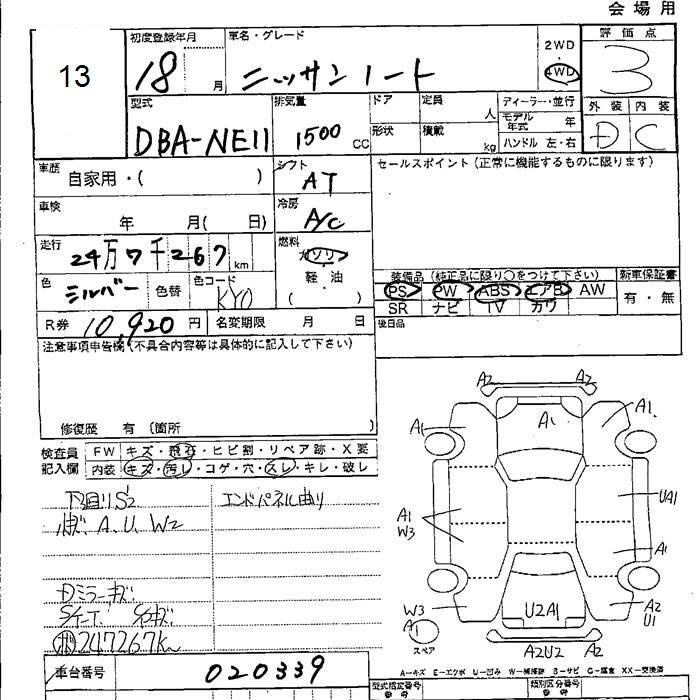 会場用
13
初度登録年月
18
月
車名・グレード
ニッサンノート
2WD
4WD
評価点
3
外装 内装
D C
型式
DBA-NE11
排気量
1500
CC
ドア
形状
定員
人
積載
kg
ディーラー・並行
モデル年式 年
ハンドル 左・右
車歴
自家用・( )
シフト
AT
セールスポイント(正常に機能するものに限ります)
車検
年 月( 日)
冷房
A/C
走行
24万7千267
km
燃料
ガソリン
軽・油
( )
色
シルバー
色替
色コード
KY0
装備品(純正品に限り○をつけて下さい)
PS PW ABS エアB AW
SR ナビ TV カワ
新車保証書
有・無
R券 10,920円
名変期限 月 日
後日品
注意事項申告欄(不具合内容等は具体的に記入して下さい)
修復歴 有 (箇所 )
検査員記入欄
FW キズ・飛石・ヒビ割・リペア跡・X要
内装 キズ・汚レ・コゲ・穴・スレ・キレ・破レ
下回りS2
エンドパネル曲り
A、U、W2
Dミラーキズ
247267km
車台番号
020339
A2 A2
A1 A1 A1
UA1
A1
W3
A1
W3
A1
U2A1
A2
U1
スペア
A2U2 A2
A-キズ E-エクボ U-凹み W-補修跡 S-サビ C-腐食 XX-交換済
型式指定番号
類別区分番号